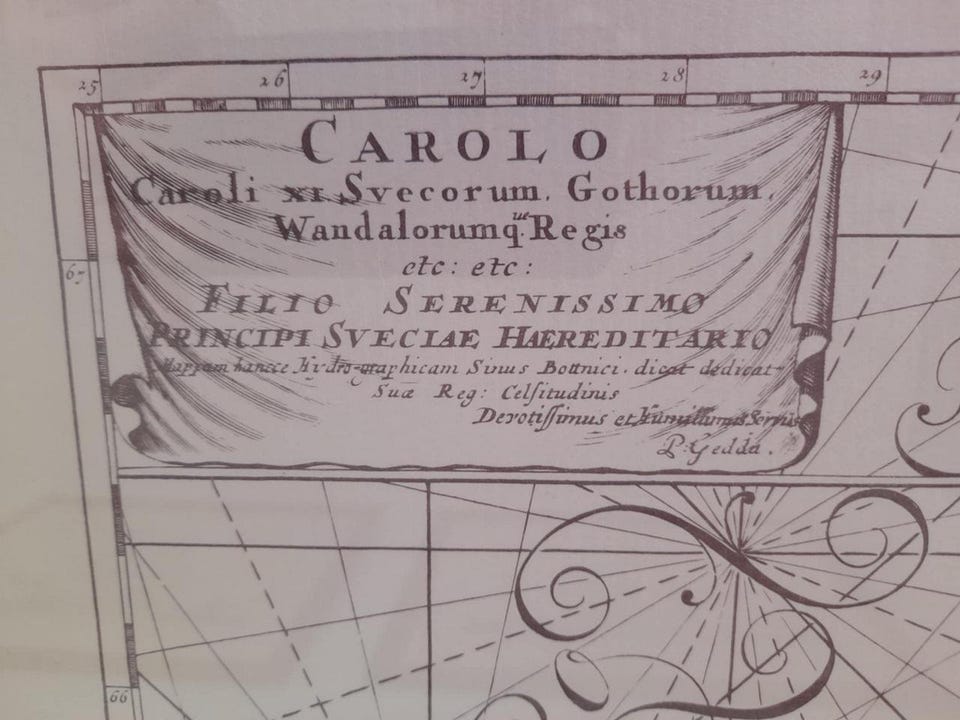 25 26 27 28 29
CAROLO
Caroli XI. Svecorum. Gothorum.
Wandalorumq.ue Regis
etc: etc:
FILIO SERENISSIMO
PRINCIPI SVECIAE HAEREDITARIO
Mappam hancce Hydro-graphicam Sinus Bottnici. dicat dedicat
Suæ Reg: Celſitudinis
Devotiſſimus et Humillimus Servus
P: Gedda.
67
66